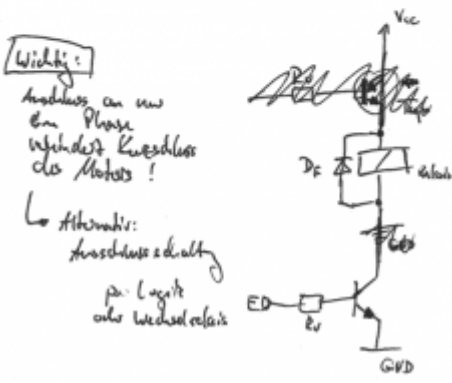 Wichtig:
Anschluss an nur
Phase
verhindert Kurzschluss
des Motors !
Alternativ:
Ausschlussschaltg
per Logik
oder Wechselrelais
Vcc
DF
Relais
ED
Rv
GND